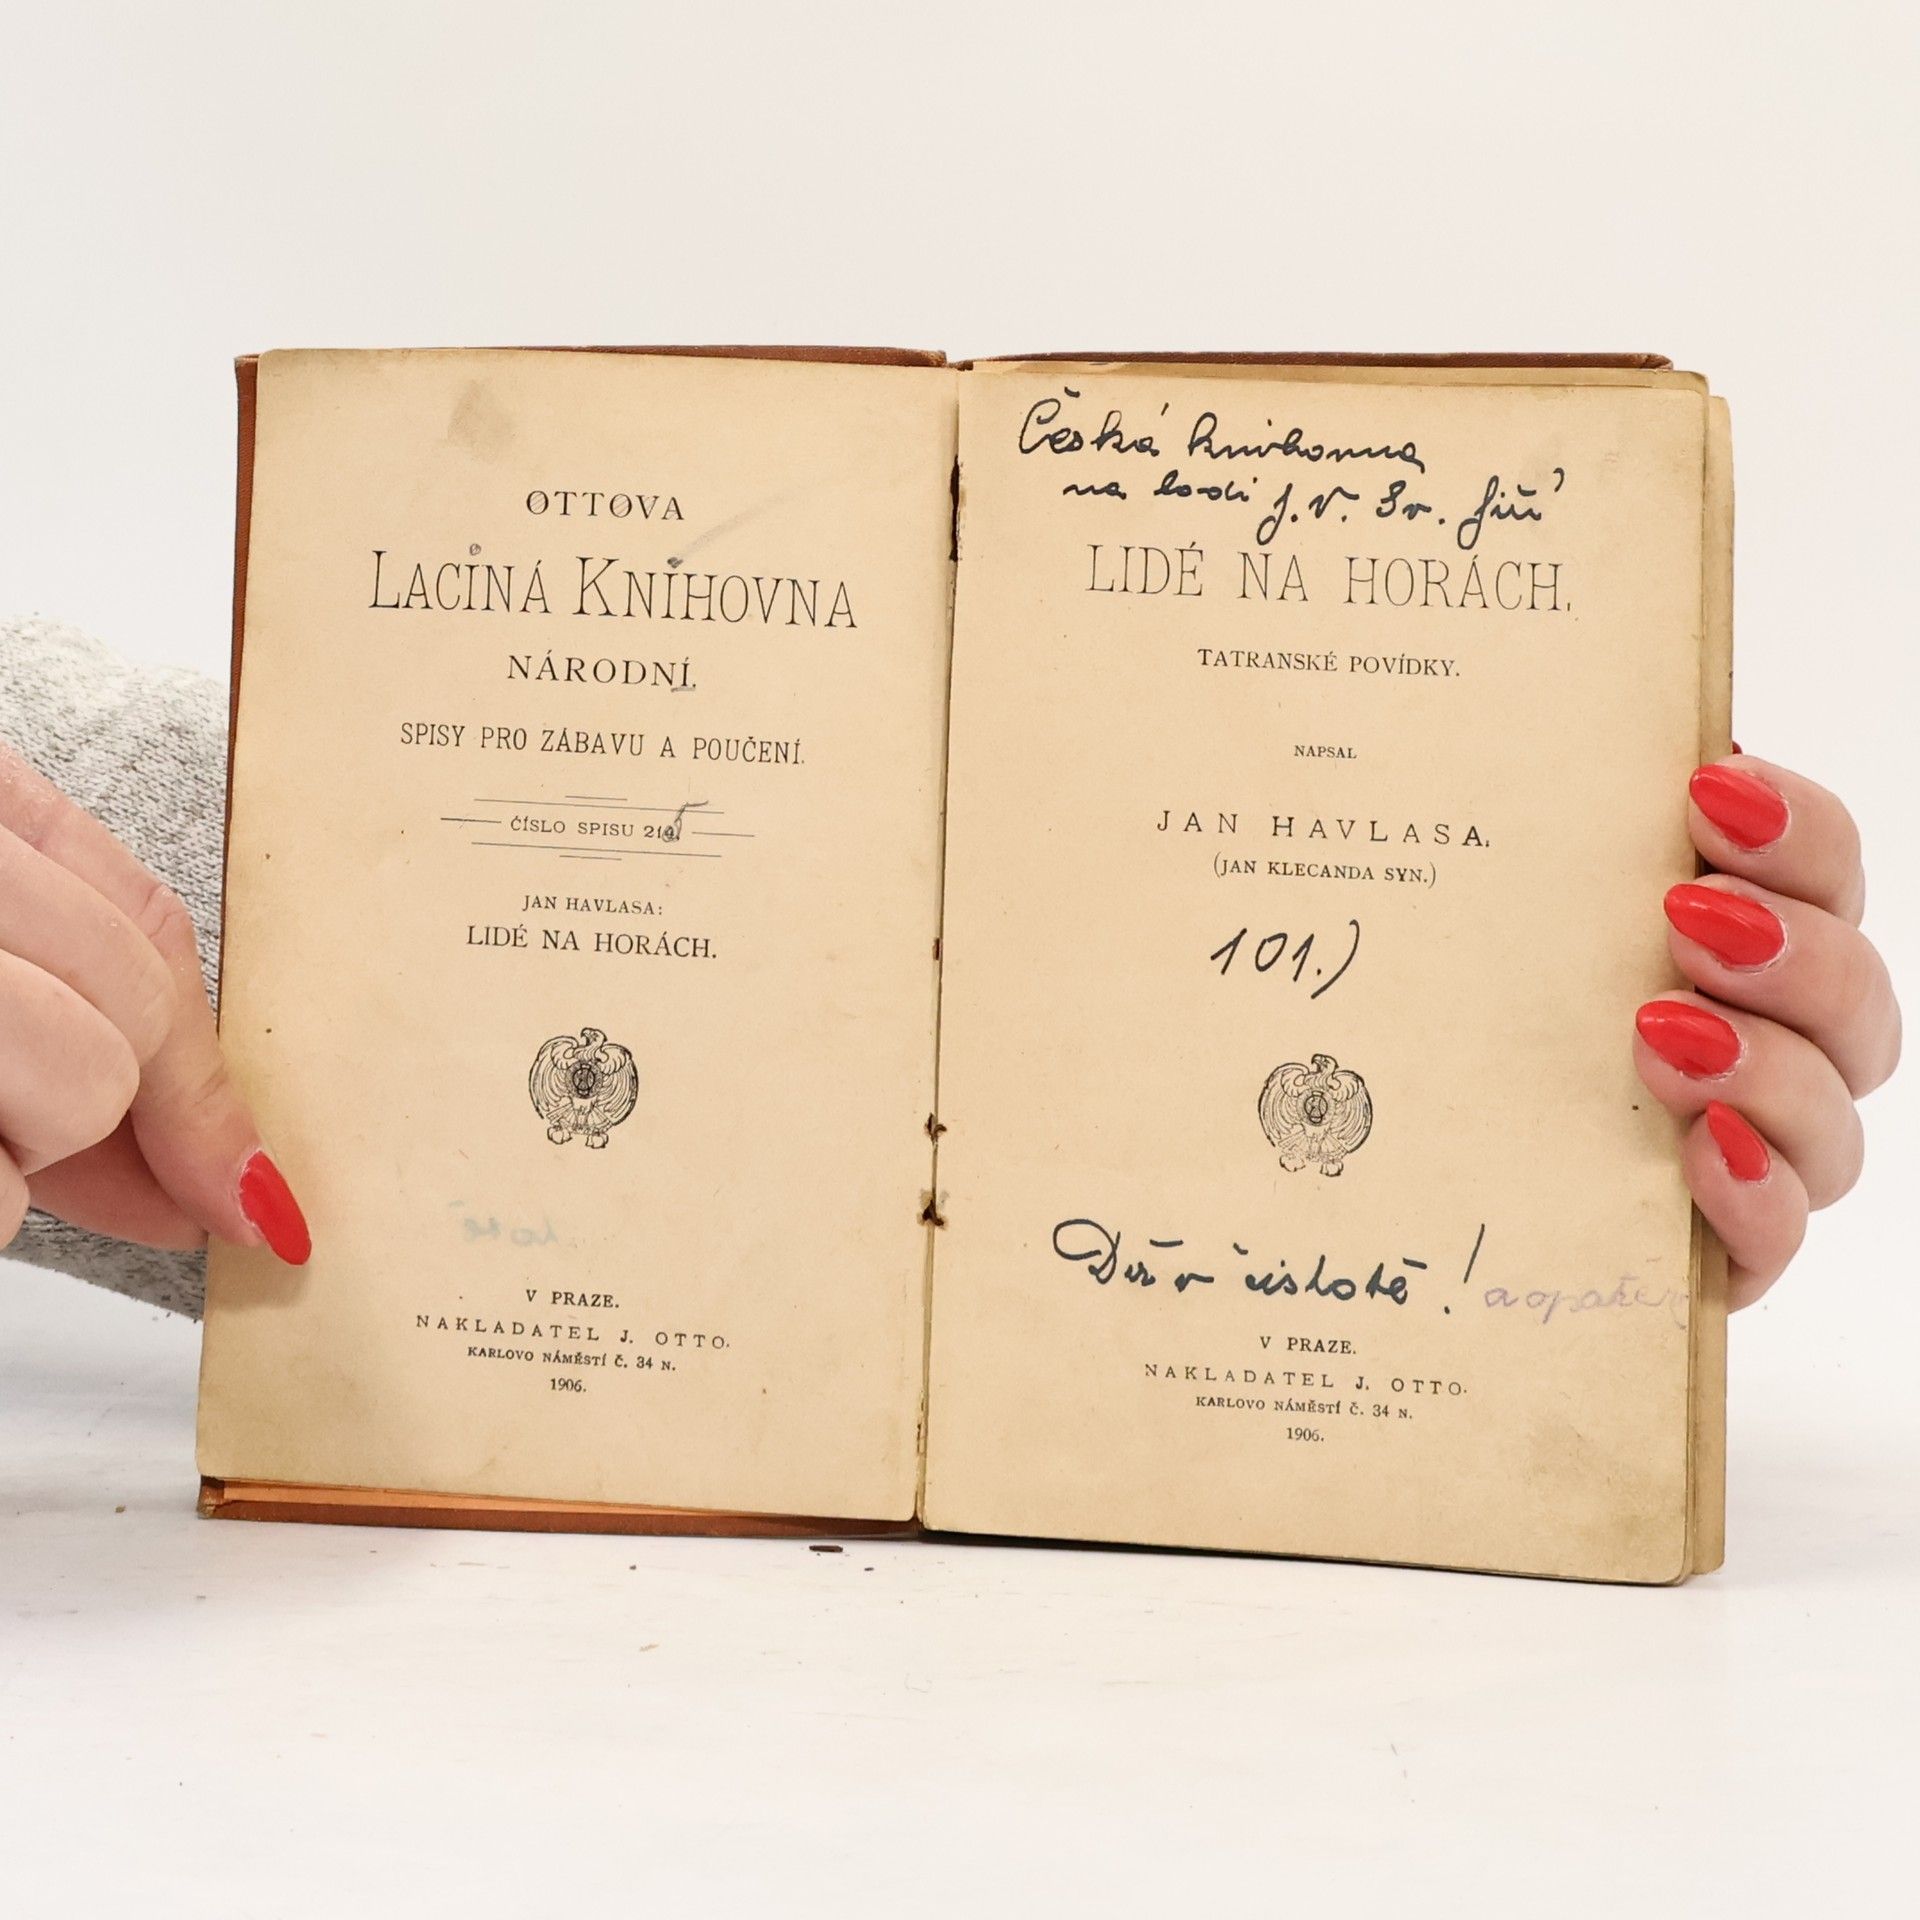 OTTOVA
LACINÁ KNIHOVNA
NÁRODNÍ.
SPISY PRO ZÁBAVU A POUČENÍ.
ČÍSLO SPISU 215
JAN HAVLASA:
LIDÉ NA HORÁCH.
V PRAZE.
NAKLADATEL J. OTTO.
KARLOVO NÁMĚSTÍ Č. 34 N.
1906.
Česká knihovna
na lodi J. V. Sv. Jiří
LIDÉ NA HORÁCH.
TATRANSKÉ POVÍDKY.
NAPSAL
JAN HAVLASA.
(JAN KLECANDA SYN.)
101.)
Drž v čistotě! a opatěr
V PRAZE.
NAKLADATEL J. OTTO.
KARLOVO NÁMĚSTÍ Č. 34 N.
1906.